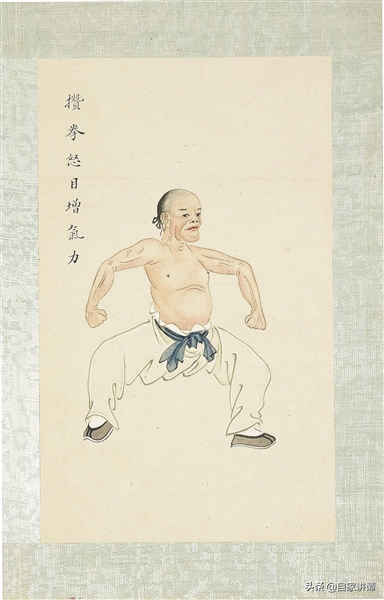 攢拳怒目增氣力
头条 @自家讲谭